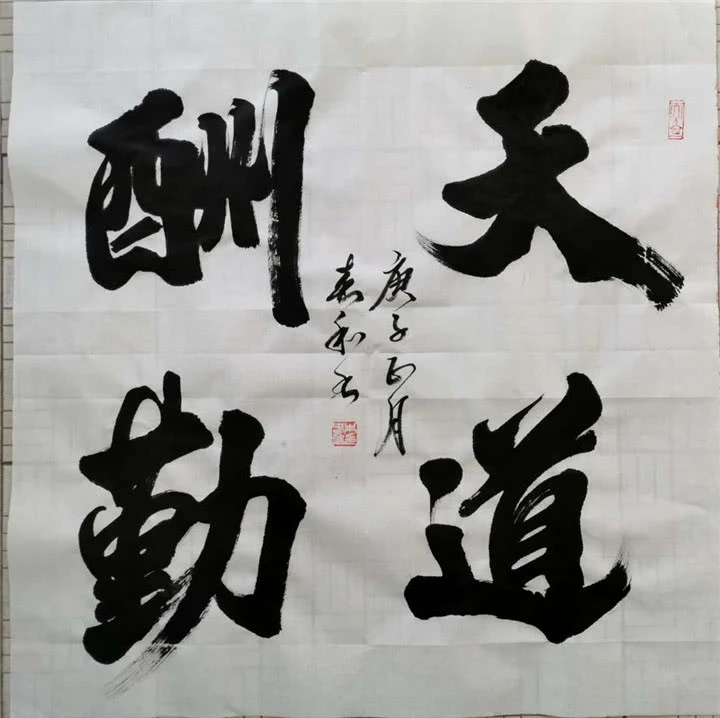 天道
酬勤
庚子正月
春和书